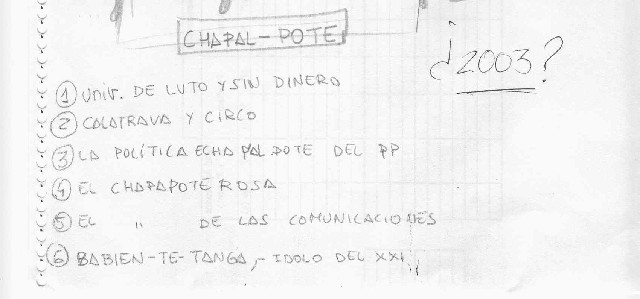 CHAPAL-POTE
¿2003?
① Univ. DE LUTO Y SIN DINERO
② CALATRAVA Y CIRCO
③ LA POLÍTICA ECHA PAL POTE DEL PP
④ EL CHAPAPOTE ROSA
⑤ EL " DE LAS COMUNICACIONES
⑥ BABIEN-TE-TANGA,- IDOLO DEL XXI